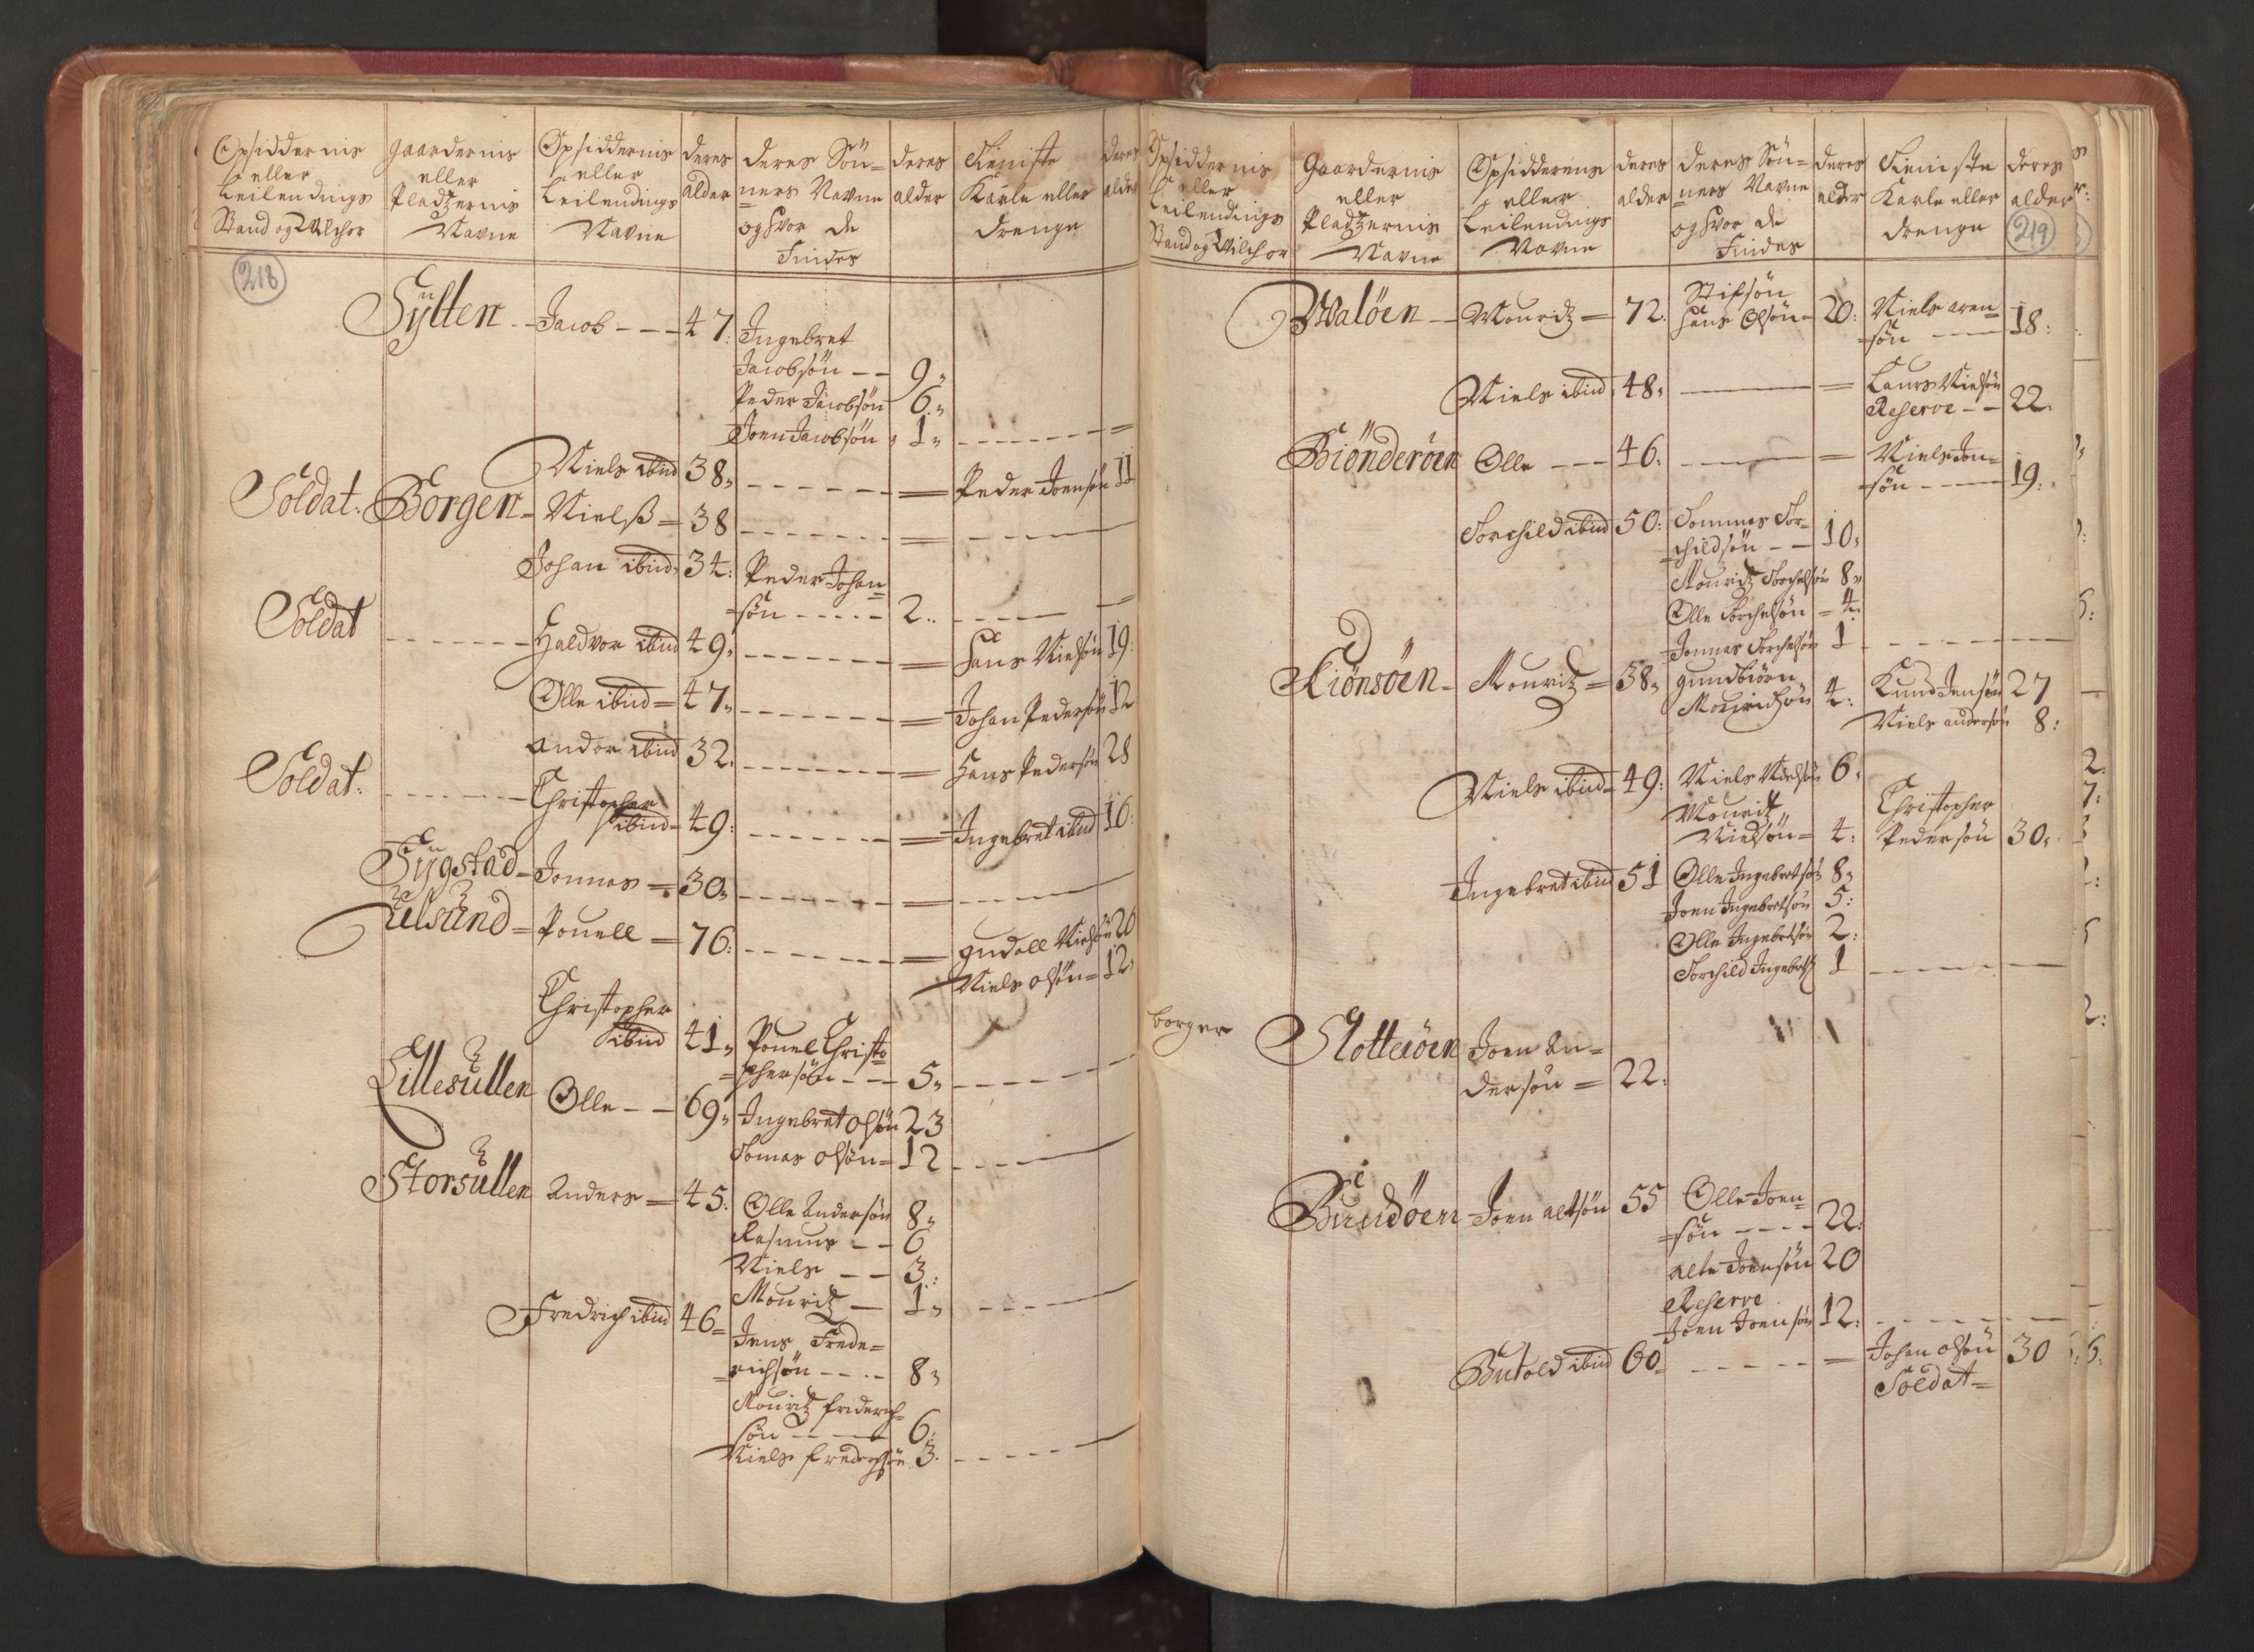 Opsiddernis eller Leilendings Stand og Vilchor
Gaardernis eller Pladzernis Navne
Opsiddernis eller Leilendings Navne
deres alder
deres Sönners Navne og hvor de Findes
deres alder
Tieniste Karle eller drenge
deres alder
218
Sÿlten - Jacob - - - 47: Ingebret
Jacobsön - - 9
Peder Jacobsön 6
Joen Jacobsön 1 - - - - - - =
Niels ibid 38 - - - - - = Peder Joensön 11
Soldat: Borgen - Nielss = 38 - - - - - = - - - -
Johan ibid 34: Peder Johan=
=sön - - - - 2 - - - - =
Soldat - - - - - Haldvor ibid 49 - - - - - = Hans Nielsön 19
Olle ibid = 47 - - - - - = Johan Pedersön 12
Andor ibid 32 - - - - - = Hans Pedersön 28
Soldat: - - - - - Christopher
ibid = 49: - - - - - = Ingebret ibid 16:
Sÿgstad - Jonnas = 30 - - - - - = - - - -
Ulsund = Pouell = 76: - - - - - = Gudall Nielsön 20
Niels Olsön = 12
Christopher
ibid 41 Pouel Christo
=phersön - - 5 - - - -
Lillesullen Olle - - 69 Ingebret Olsön 23
Tomas Olsön = 12 - - - -
Storsullen Anders = 45: Olle Andersön 8
Rasmus - - 6
Niels - - 3:
Mouritz - 1 - - - -
Fredrich ibid 46 = Jens Frede=
=richsön - - - - 8
Mouritz Friderich=
sön - - - 6:
Niels Fredrichsön 3 - - - -
Opsiddernis eller Leilendings Stand og Vilchor
Gaardernis eller Pladzernis Navne
Opsidderens eller Leilendings Navne
deres alder
deres Sönners Navne og hvor de Findes
deres alder
Tieniste Karle eller drenge
deres alder
219
Waløen - Mouritz = 72: Stifsön
Hans Olsön = 20: Niels Aren=
=sön - - 18:
Niels ibid 48 - - = Laurs Nielsön
Reserve - - 22
Biönderöen Olle - - - 46: - - = Niels Jon=
=sön - - - 19:
Torchild ibid 50: Tommas Tor=
=childsön - - 10
Mouritz Torchelsön 8
Olle Torchelsön = 4:
Jonnas Torchelsön 1 - - - - -
Kiönsöen - Mouritz = 38 Gundbiörn
Mouridsön 4: Knud Jensön 27
Niels Andersön 8:
Niels ibid = 49: Niels Nielsön 6
Mouritz
Nielsön = 4: Christopher
Pedersön 30
Ingebret ibid 51 Olle Ingebretsön 8
Joen Ingebretsön 5:
Olle Ingebretsön 2:
Torchild Ingebrets 1 - - - -
borger Slotteröen Joen An=
dersön = 22:
Biudöen - Joen Altsön 55 Olle Joen=
=sön - - - - 22:
Alte Joensön 20
Reserve
Joen Joensön 12: - - - - -
Butold ibid 60 - - - - = Johan Olsön 30
Soldat =